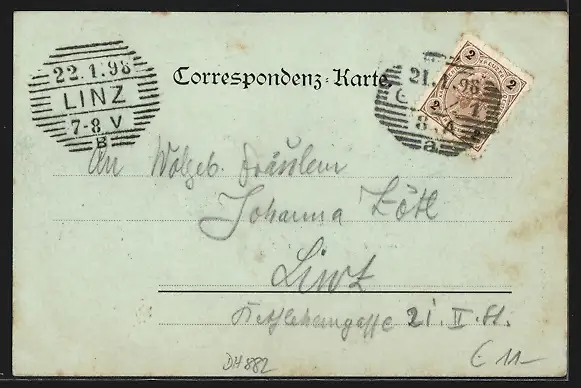 22.1.98
LINZ
7-8 V
B
Correspondenz-Karte
21.1.98
8 A
a
2 2
2
An Wolgeb. Fräulein
Johanna
Linz
21. II. St.
DH882
€ 11